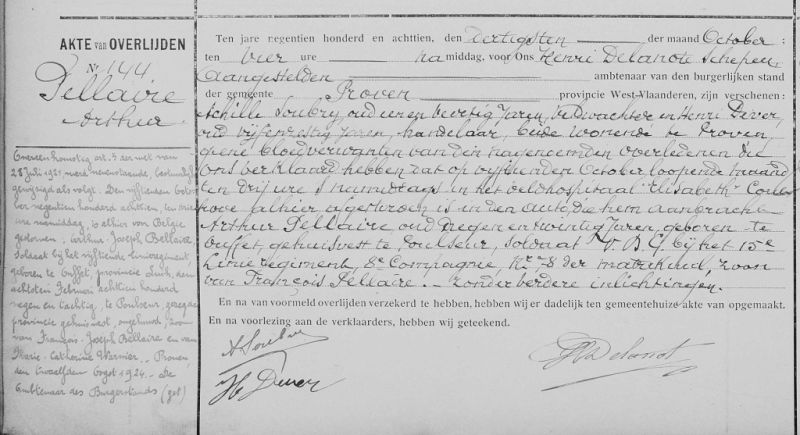 AKTE van OVERLIJDEN
Nr 144
Pellaire
Arthur
Overeenkomstig art. 5 der wet van
28 Juli 1921 werd nevenstaande, bestendig
gewijzigd als volgt: Den vijftienden Octo-
ber negentien honderd achttien, ten drie
ure namiddag, is alhier voor Belgie
gestorven: Arthur-Joseph Bellaire
Soldaat bij het vijftiende linieregiment
geboren te Ouffet, provincie Luik, den
achtsten Februari achttien honderd
negen en tachtig, te Poulseur, gezegde
provincie gehuisvest, ongehuwd, zoon
van François-Joseph Bellaire en van
Marie-Catherine Warnier. Proven,
den twaalfden Oogst 1924. De
Ambtenaar des Burgerstands (get)
Ten jare negentien honderd en achttien, den dertigsten der maand October :
ten vier ure na middag, voor Ons Henri Delanote Schepen
Aangestelden ambtenaar van den burgerlijken stand
der gemeente Proven provincie West-Vlaanderen, zijn verschenen:
Achille Soubry, oud een en veertig jaren, veldwachter en Henri Dever
oud vijf en zestig jaren, handelaar, beide wonende te Proven,
geene bloedverwanten van den nagenoemden overledenen die
ons verklaard hebben dat op vijftienden October, loopende maand
ten drij ure 's namiddags in het veldhospitaal "Elisabeth" Cou-
hove alhier afgestorven is in den auto, die hem aanbracht
Arthur Pellaire oud negen en twintig jaren, geboren te
Ouffet, gehuisvest te Poulseur, soldaat V. B. G. bij het 15e
Linie regiment, 8e Compagnie, Nr 28 der matrikuul, zoon
van François Pellaire. - zonder verdere inlichtingen.
En na van voormeld overlijden verzekerd te hebben, hebben wij er dadelijk ten gemeentehuize akte van opgemaakt.
En na voorlezing aan de verklaarders, hebben wij geteekend.
A Soubry
H Dever
H Delanote